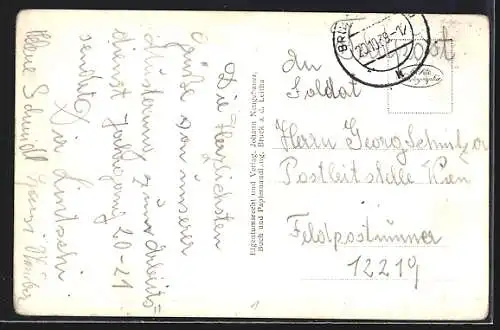 Die Herzlichsten
Grüße von unserer
Musterung zum Arbeits=
dienst Jahrgang 20-21
sendet Dir
Schmidl
Eigentumsrecht und Verlag, Johann Neugebauer,
Buch und Papierhandlung, Bruck a. d. Leitha
BRU
k
Feldpost
An
Soldat
Herrn Georg Schmitzer
Postleitstelle Wien
Feldpostnummer
12219